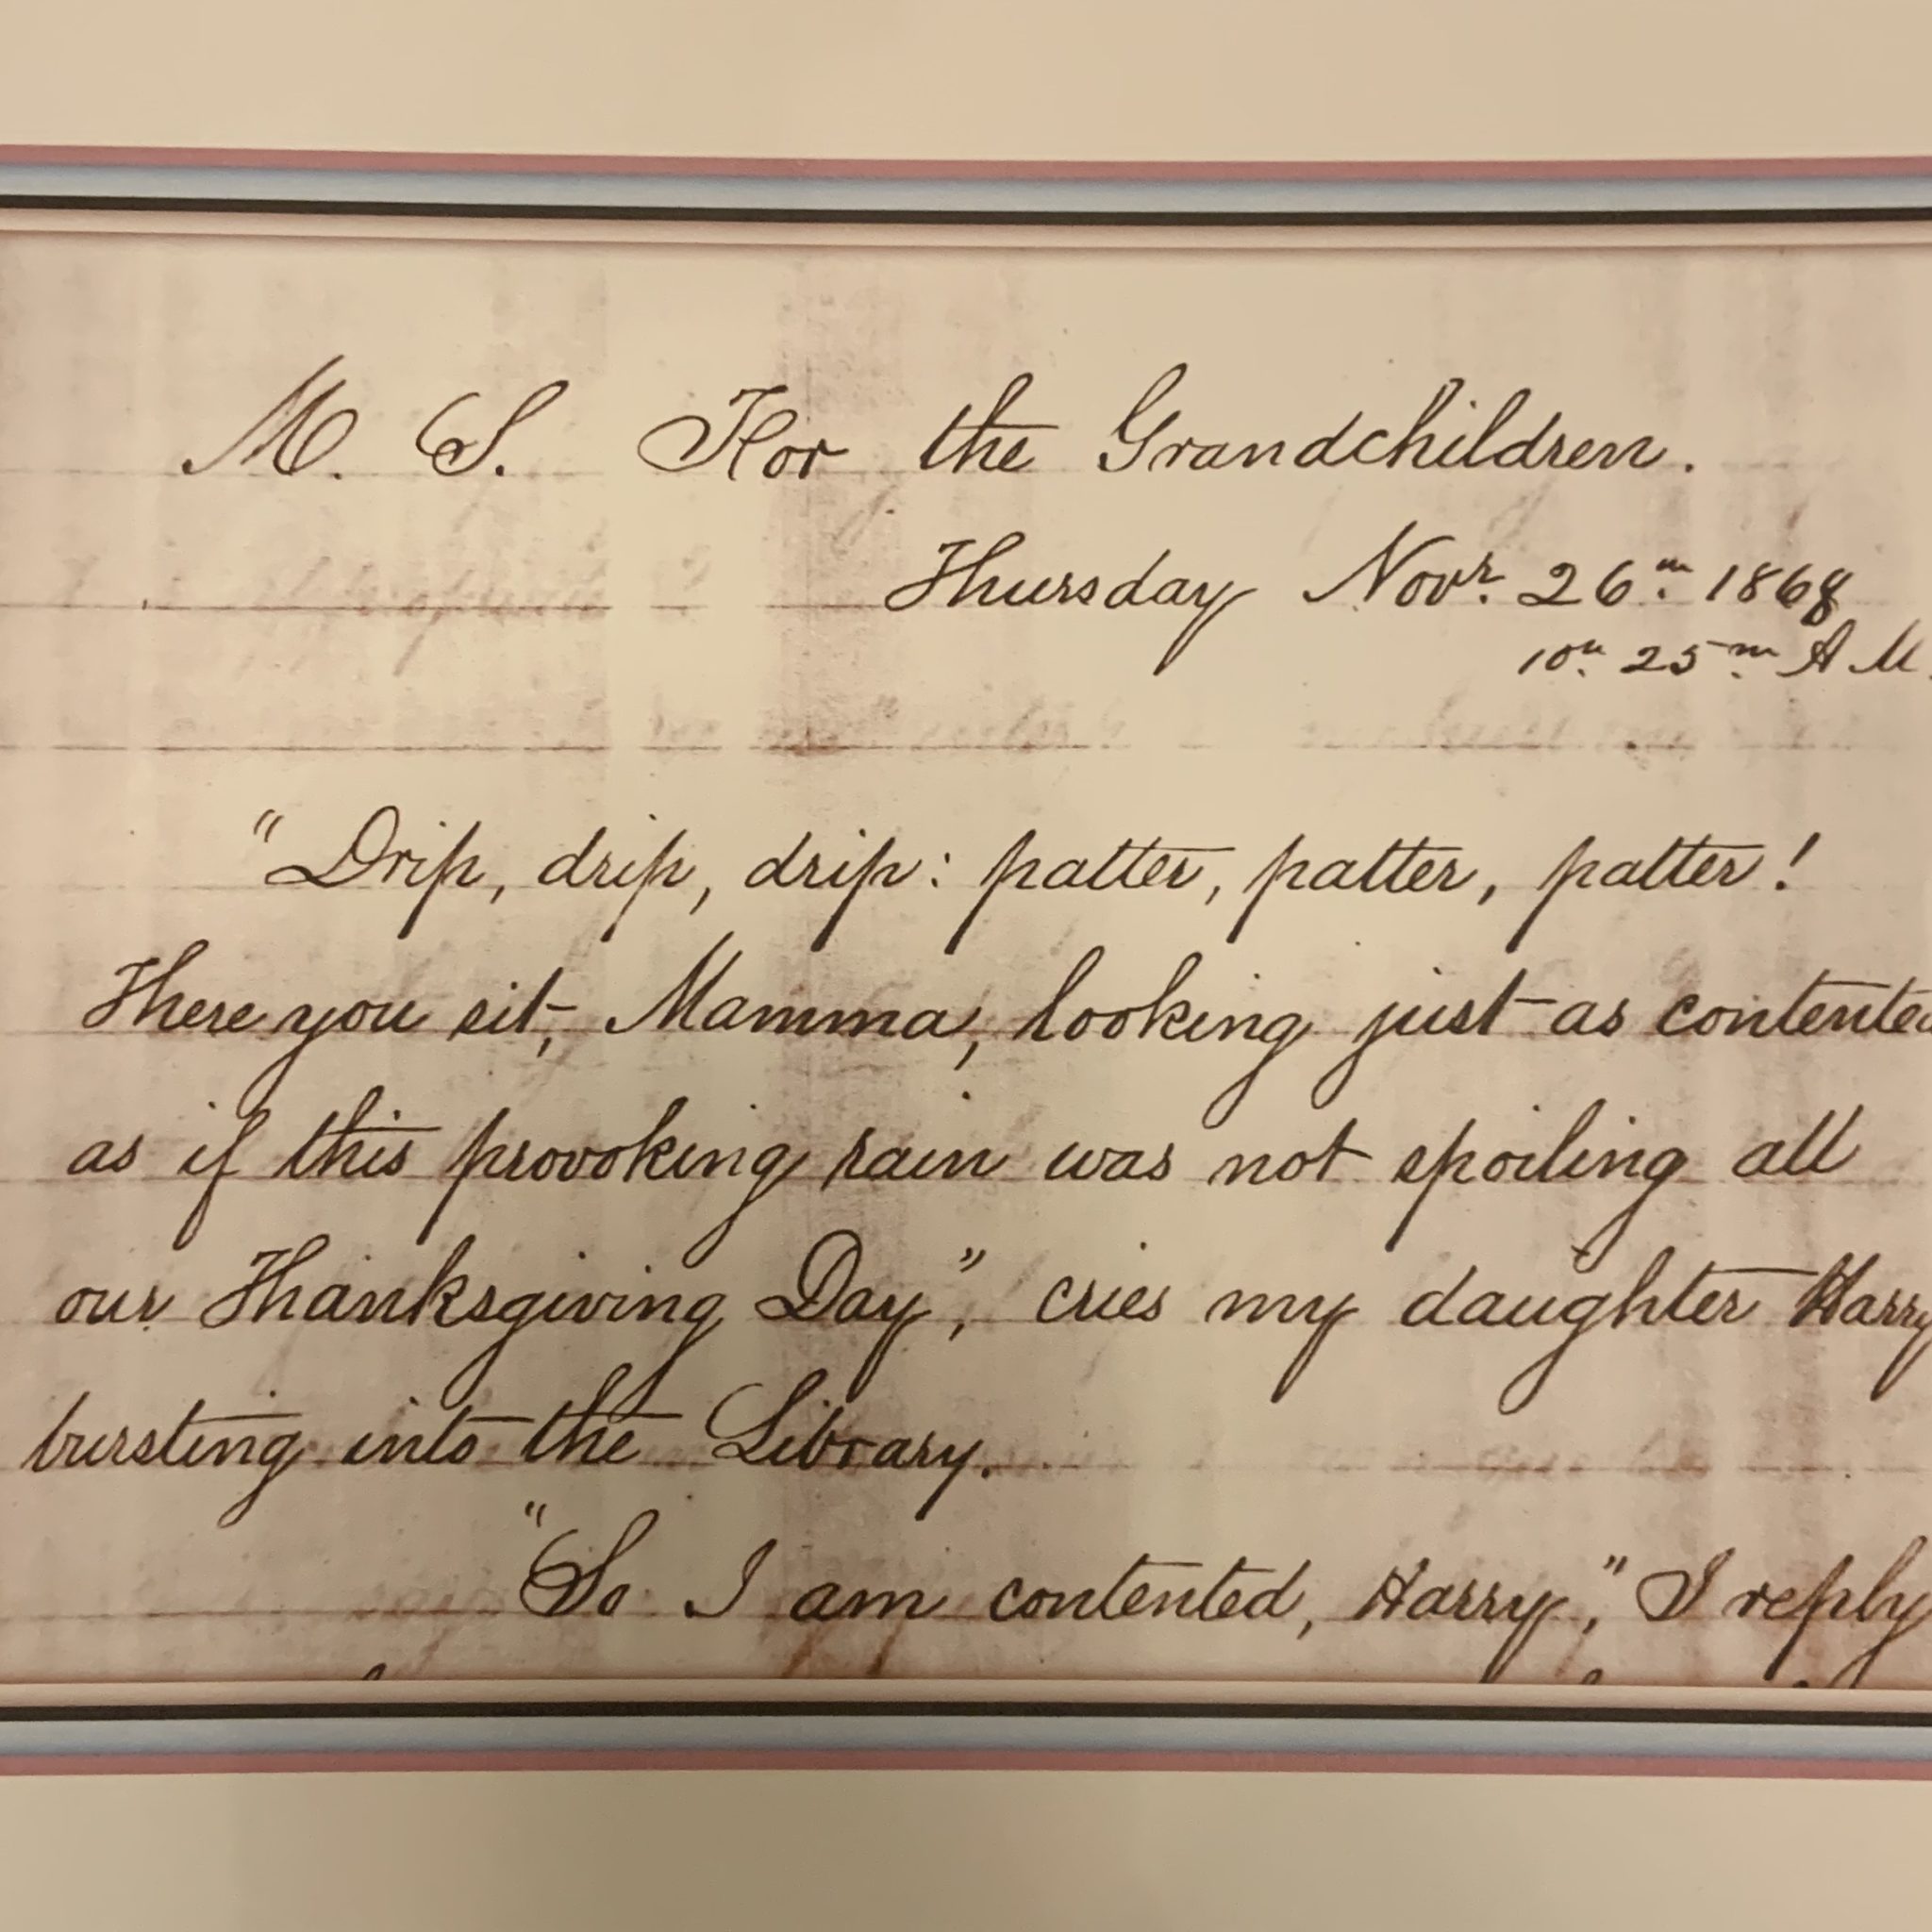 M. S. For the Grandchildren.
Thursday Novr. 26th. 1868
10h. 25m. A M.
"Drip, drip, drip: patter, patter, patter!
There you sit, Mamma, looking just as contented
as if this provoking rain was not spoiling all
our Thanksgiving Day", cries my daughter Harry
bursting into the Library.
"So I am contented, Harry," I reply